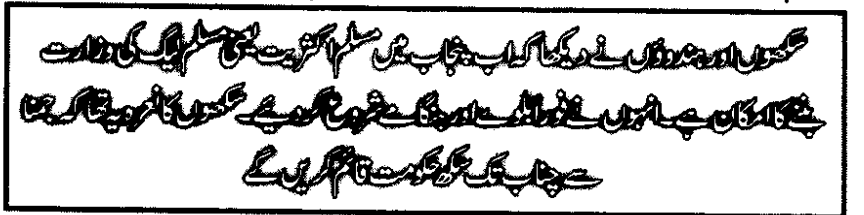 سکھوں اور ہندوؤں نے دیکھا کہ اب پنجاب میں مسلم اکثریت یعنی مسلم لیگ کی وزارت
بننے کا امکان ہے۔ انہوں نے فوراً بلوے اور ہنگامے شروع کر دیے۔ سکھوں کا نعرہ یہ تھا کہ جمنا
سے چناب تک سکھ حکومت قائم کریں گے